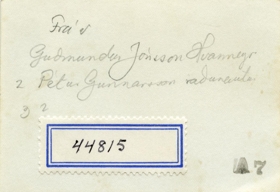 Frá v
Guðmundur Jónsson Hvanneyr
2 Pétur Gunnarsson
3 2
44815
A7